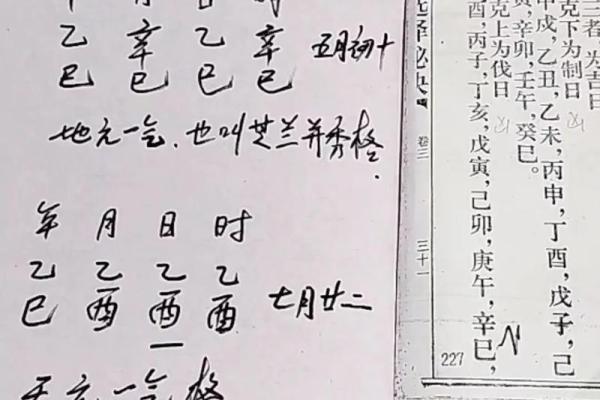 乙 辛 乙 辛
巳 巳 巳 巳 五月初十
地元一气,也叫芝兰并秀格.
年 月 日 时
乙 乙 乙 乙
巳 酉 酉 酉 七月廿二
天元一气格
三者,为吉日
克下为制日 凶
甲戌,乙丑,乙未,丙申,丁酉,戊子,己
寅,辛卯,壬午,癸巳。
克上为伐日 凶
酉,丙子,丁亥,戊寅,己卯,庚午,辛巳,
选择秘诀 卷三 三十一
227